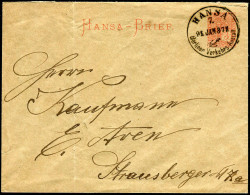 HANSA-BRIEF.
HANSA
Berliner Verkehrs-Anstalt
Herrn
Kaufmann
E. Aren
Strausberger